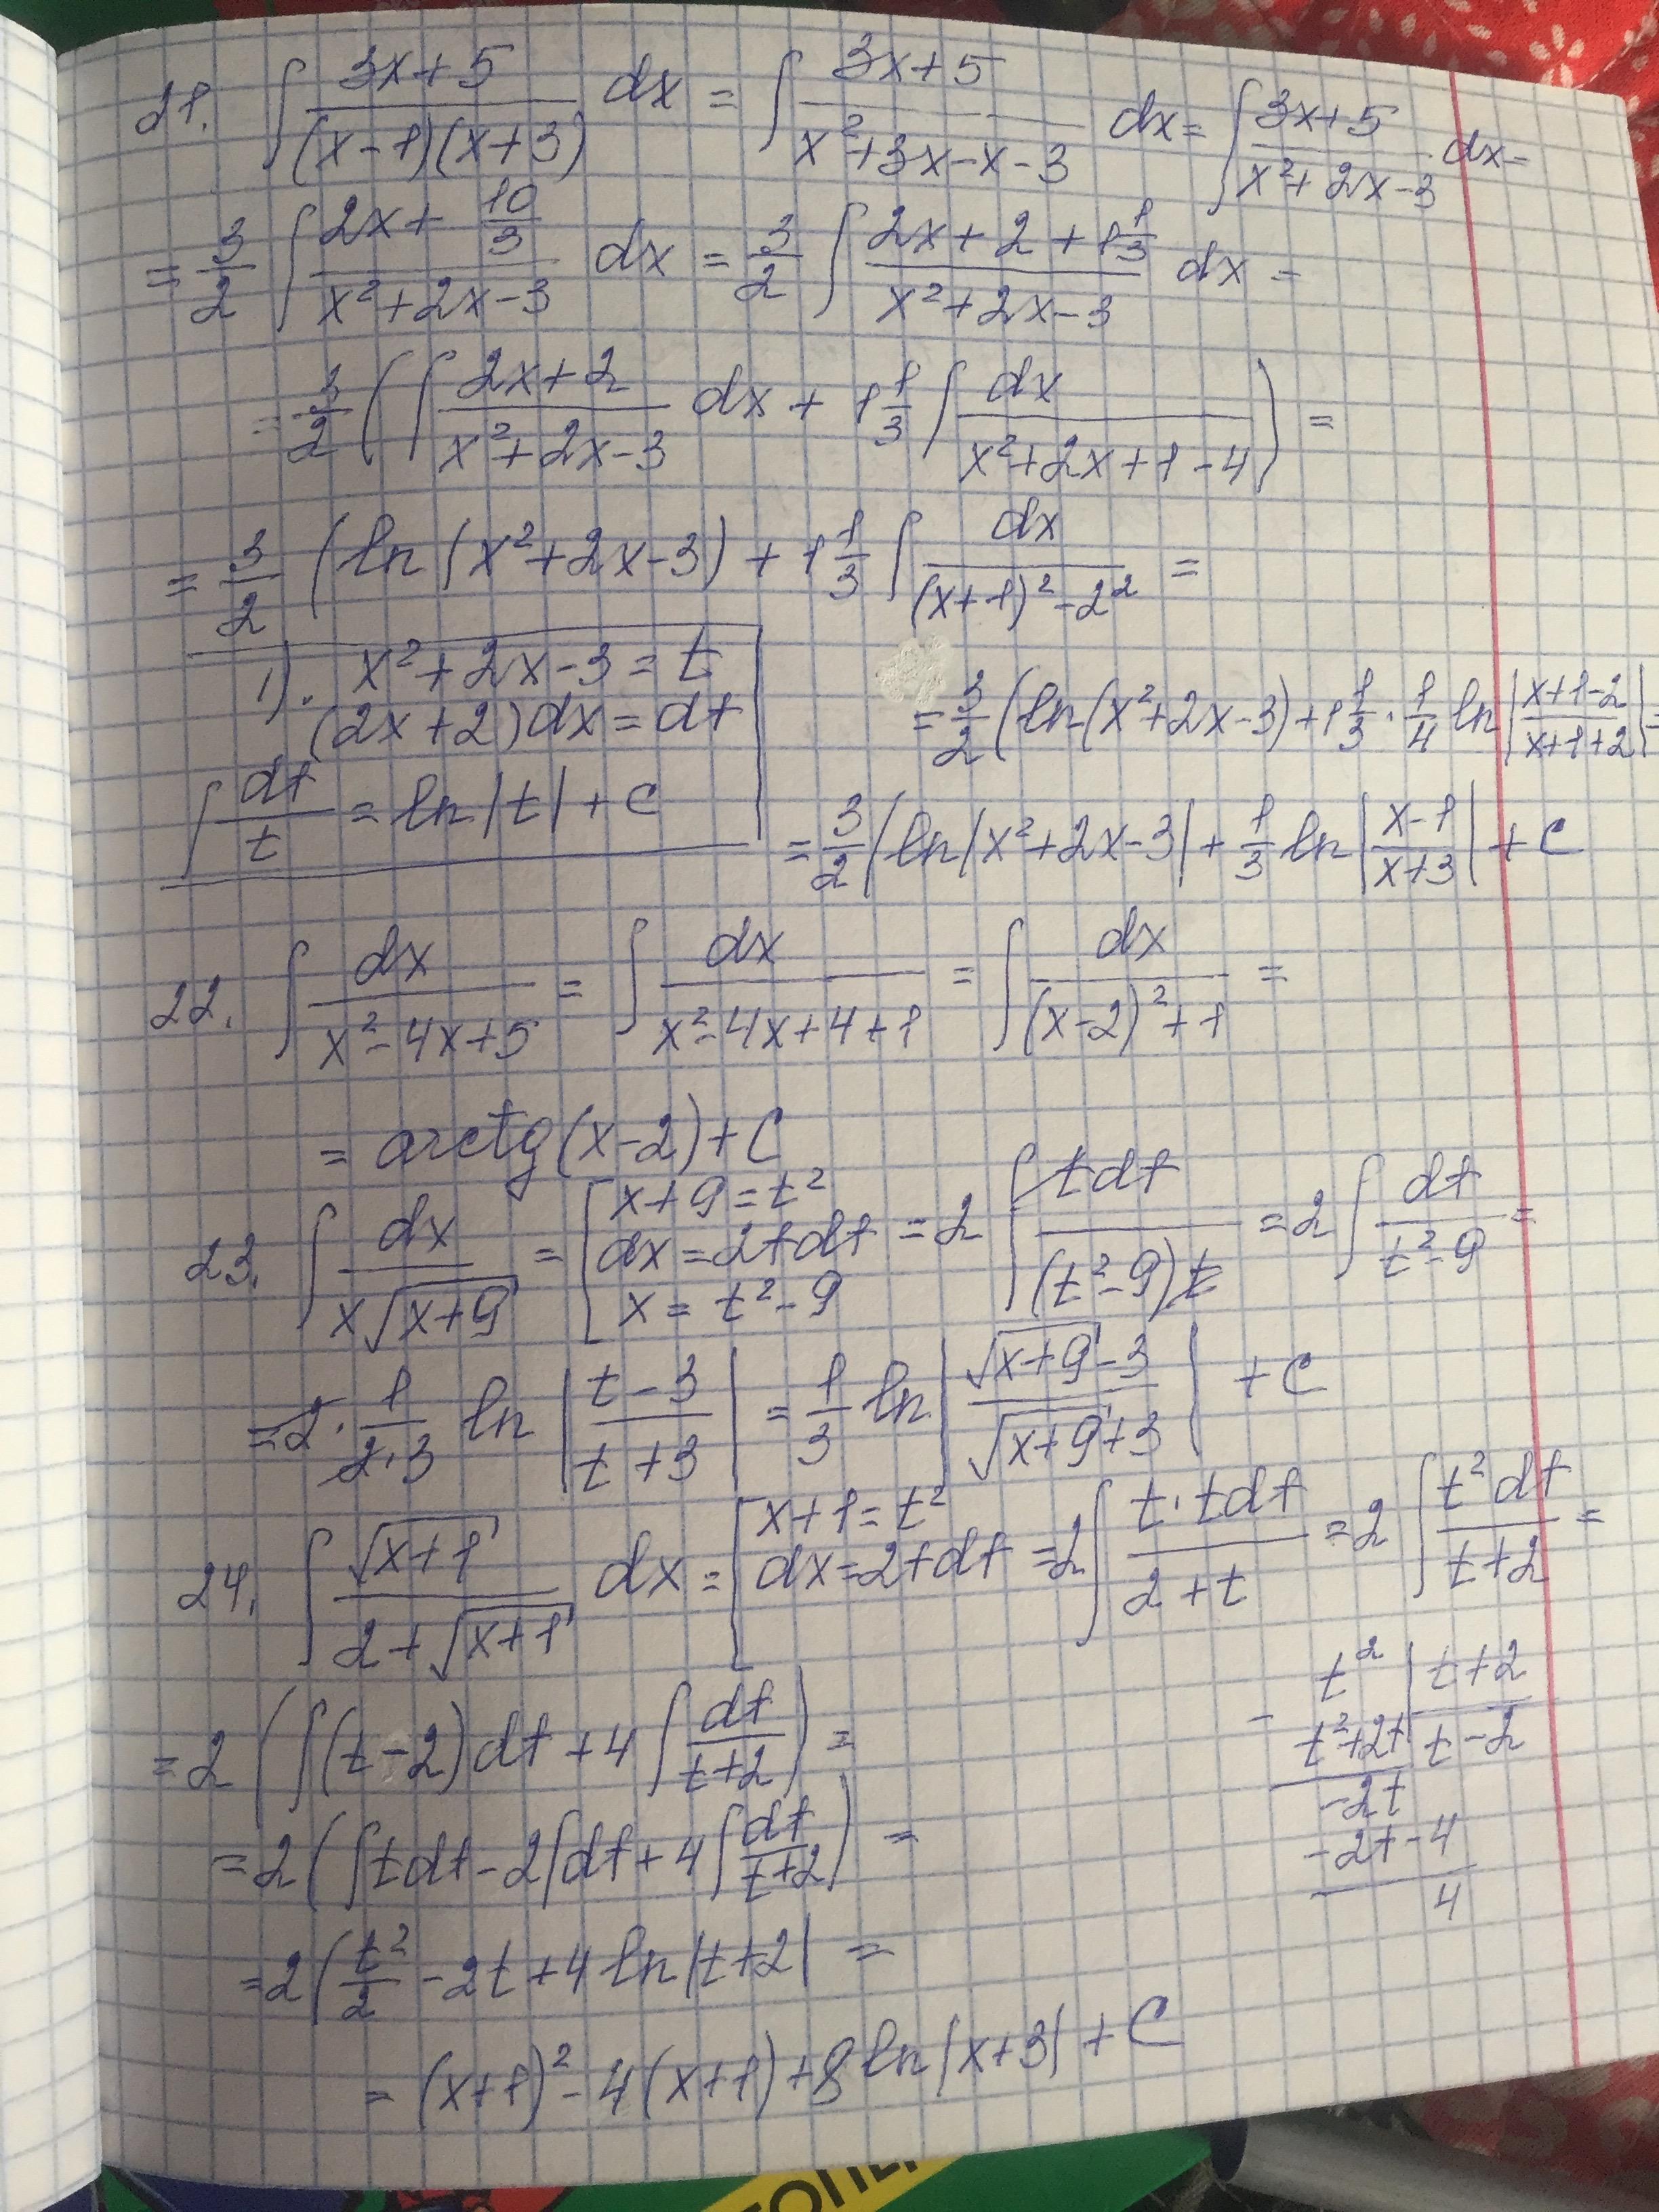 21. ∫ (3x+5)/((x-1)(x+3)) dx = ∫ (3x+5)/(x²+3x-x-3) dx = ∫ (3x+5)/(x²+2x-3) dx =
= 3/2 ∫ (2x+ 10/3)/(x²+2x-3) dx = 3/2 ∫ (2x+2+1 1/3)/(x²+2x-3) dx =
= 3/2 (∫ (2x+2)/(x²+2x-3) dx + 1 1/3 ∫ dx/(x²+2x+1-4)) =
= 3/2 (ln(x²+2x-3) + 1 1/3 ∫ dx/((x+1)²-2²) =
1). x²+2x-3=t
(2x+2)dx=dt
∫ dt/t = ln|t|+C
= 3/2 (ln(x²+2x-3)+1 1/3 · 1/4 ln|(x+1-2)/(x+1+2)| =
= 3/2 (ln|x²+2x-3| + 1/3 ln|(x-1)/(x+3)| + C
22. ∫ dx/(x²-4x+5) = ∫ dx/(x²-4x+4+1) = ∫ dx/((x-2)²+1) =
= arctg(x-2)+C
23. ∫ dx/(x√(x+9)) = [x+9=t² dx=2tdt x=t²-9 = 2 ∫ tdt/((t²-9)t) = 2 ∫ dt/(t²-9) =
= 2· 1/(2·3) ln |(t-3)/(t+3)| = 1/3 ln |(√(x+9)-3)/(√(x+9)+3)| + C
24. ∫ √(x+1)/(2+√(x+1)) dx = [x+1=t² dx=2tdt = 2 ∫ t·tdt/(2+t) = 2 ∫ t²dt/(t+2) =
= 2 (∫(t-2)dt + 4 ∫ dt/(t+2)) =
= 2 (∫tdt - 2∫dt + 4 ∫ dt/(t+2)) =
= 2 (t²/2 - 2t + 4 ln|t+2| =
= (x+1)² - 4(x+1) + 8 ln|x+3| + C
- t² | t+2
t²+2t | t-2
-2t
-2t-4
4